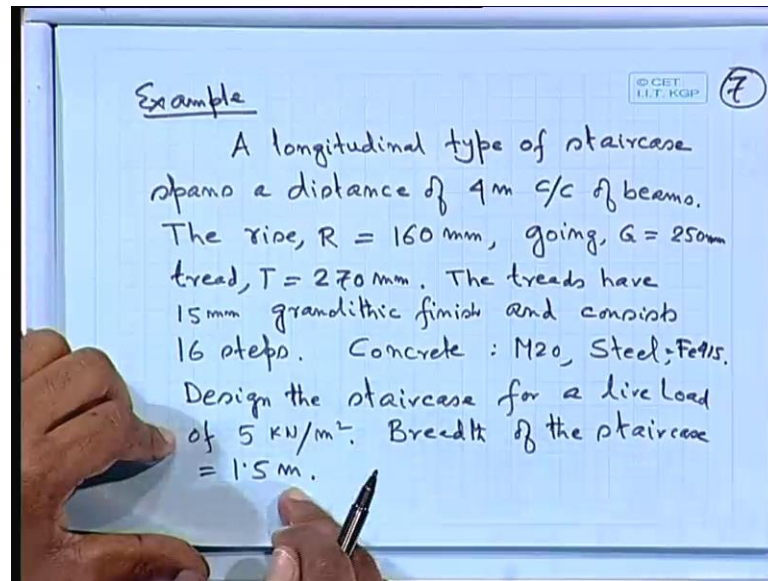 © CET
I.I.T. KGP
7
Example
A longitudinal type of staircase
spans a distance of 4m c/c of beams.
The rise, R = 160 mm, going, G = 250mm
tread, T = 270 mm. The treads have
15 mm granolithic finish and consists
16 steps. Concrete : M20, Steel: Fe415.
Design the staircase for a live load
of 5 KN/m². Breadth of the staircase
= 1.5 m.